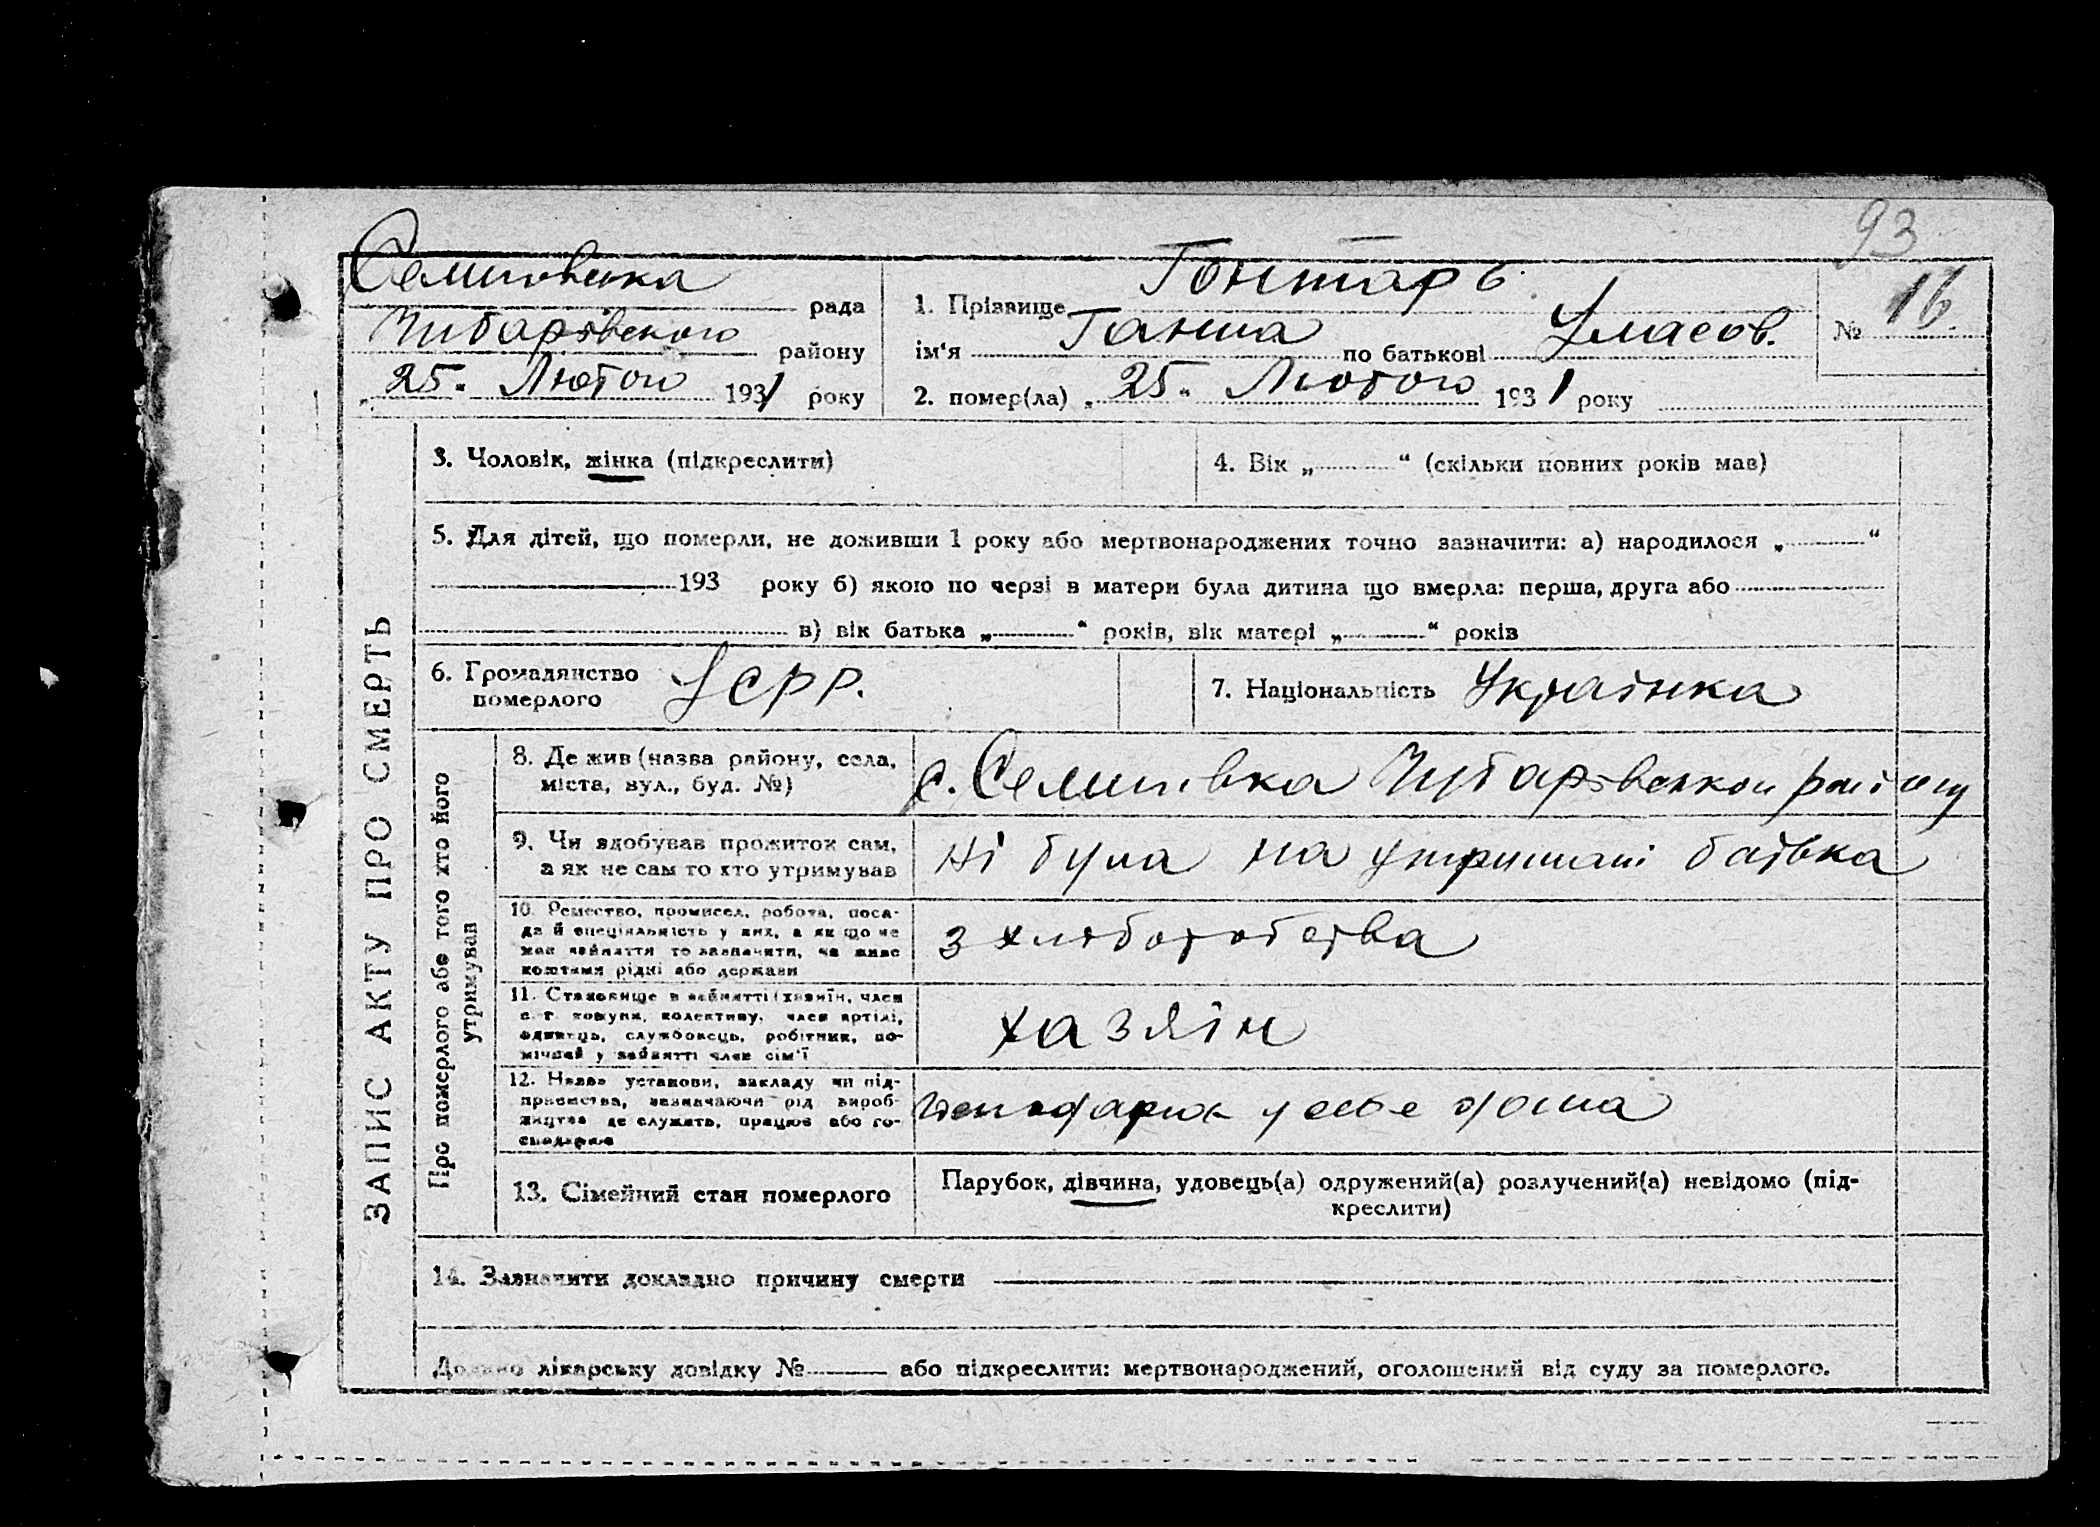 93
Семинівська рада
Чубарівского району
„25„ Лютого 1931 року
1. Прізвище Гонтарь
ім‘я Ганна по батькові Уласов.
№ 16.
2. помер(ла) „25“ Лютого 1931 року
ЗАПИС АКТУ ПРО СМЕРТЬ
3. Чоловік, жінка (підкреслити)
4. Вік „ “ (скільки повних років мав)
5. Для дітей, що померли, не доживши 1 року або мертвонароджених точно зазначити: а) народилося „ “
193 року б) якою по черзі в матери була дитина що вмерла: перша, друга або
в) вік батька „ “ років, вік матері „ “ років
6. Громадянство померлого УСРР.
7. Національність Українка
Про померлого або того хто його утримував
8. Де жив (назва району, села,
міста, вул., буд. №)
с. Семинівка Чубарівского району
9. Чи здобував прожиток сам,
а як не сам то хто утримував
Ні була на утримані батька
10. Ремество, промисел, робота, поса-
да й спеціяльність у них, а як що не
мав зайняття то зазначити, чи живе
коштами рідні або держави
з хліборобства
11. Становище в зайнятті (хазяїн, член
с.-г. комуни, колективу, член артілі,
одинець, службовець, робітник, по-
мічний у зайнятті член сім‘ї
хазяїн
12. Назва установи, закладу чи під-
приємства, зазначаючи рід вироб-
ництва де служить, працює або го-
сподарює
у себе дома
13. Сімейний стан померлого
Парубок, дівчина, удовець(а) одружений(а) розлучений(а) невідомо (під-
креслити)
14. Зазначити докладно причину смерти
Додано лікарську довідку № або підкреслити: мертвонароджений, оголошений від суду за померлого.